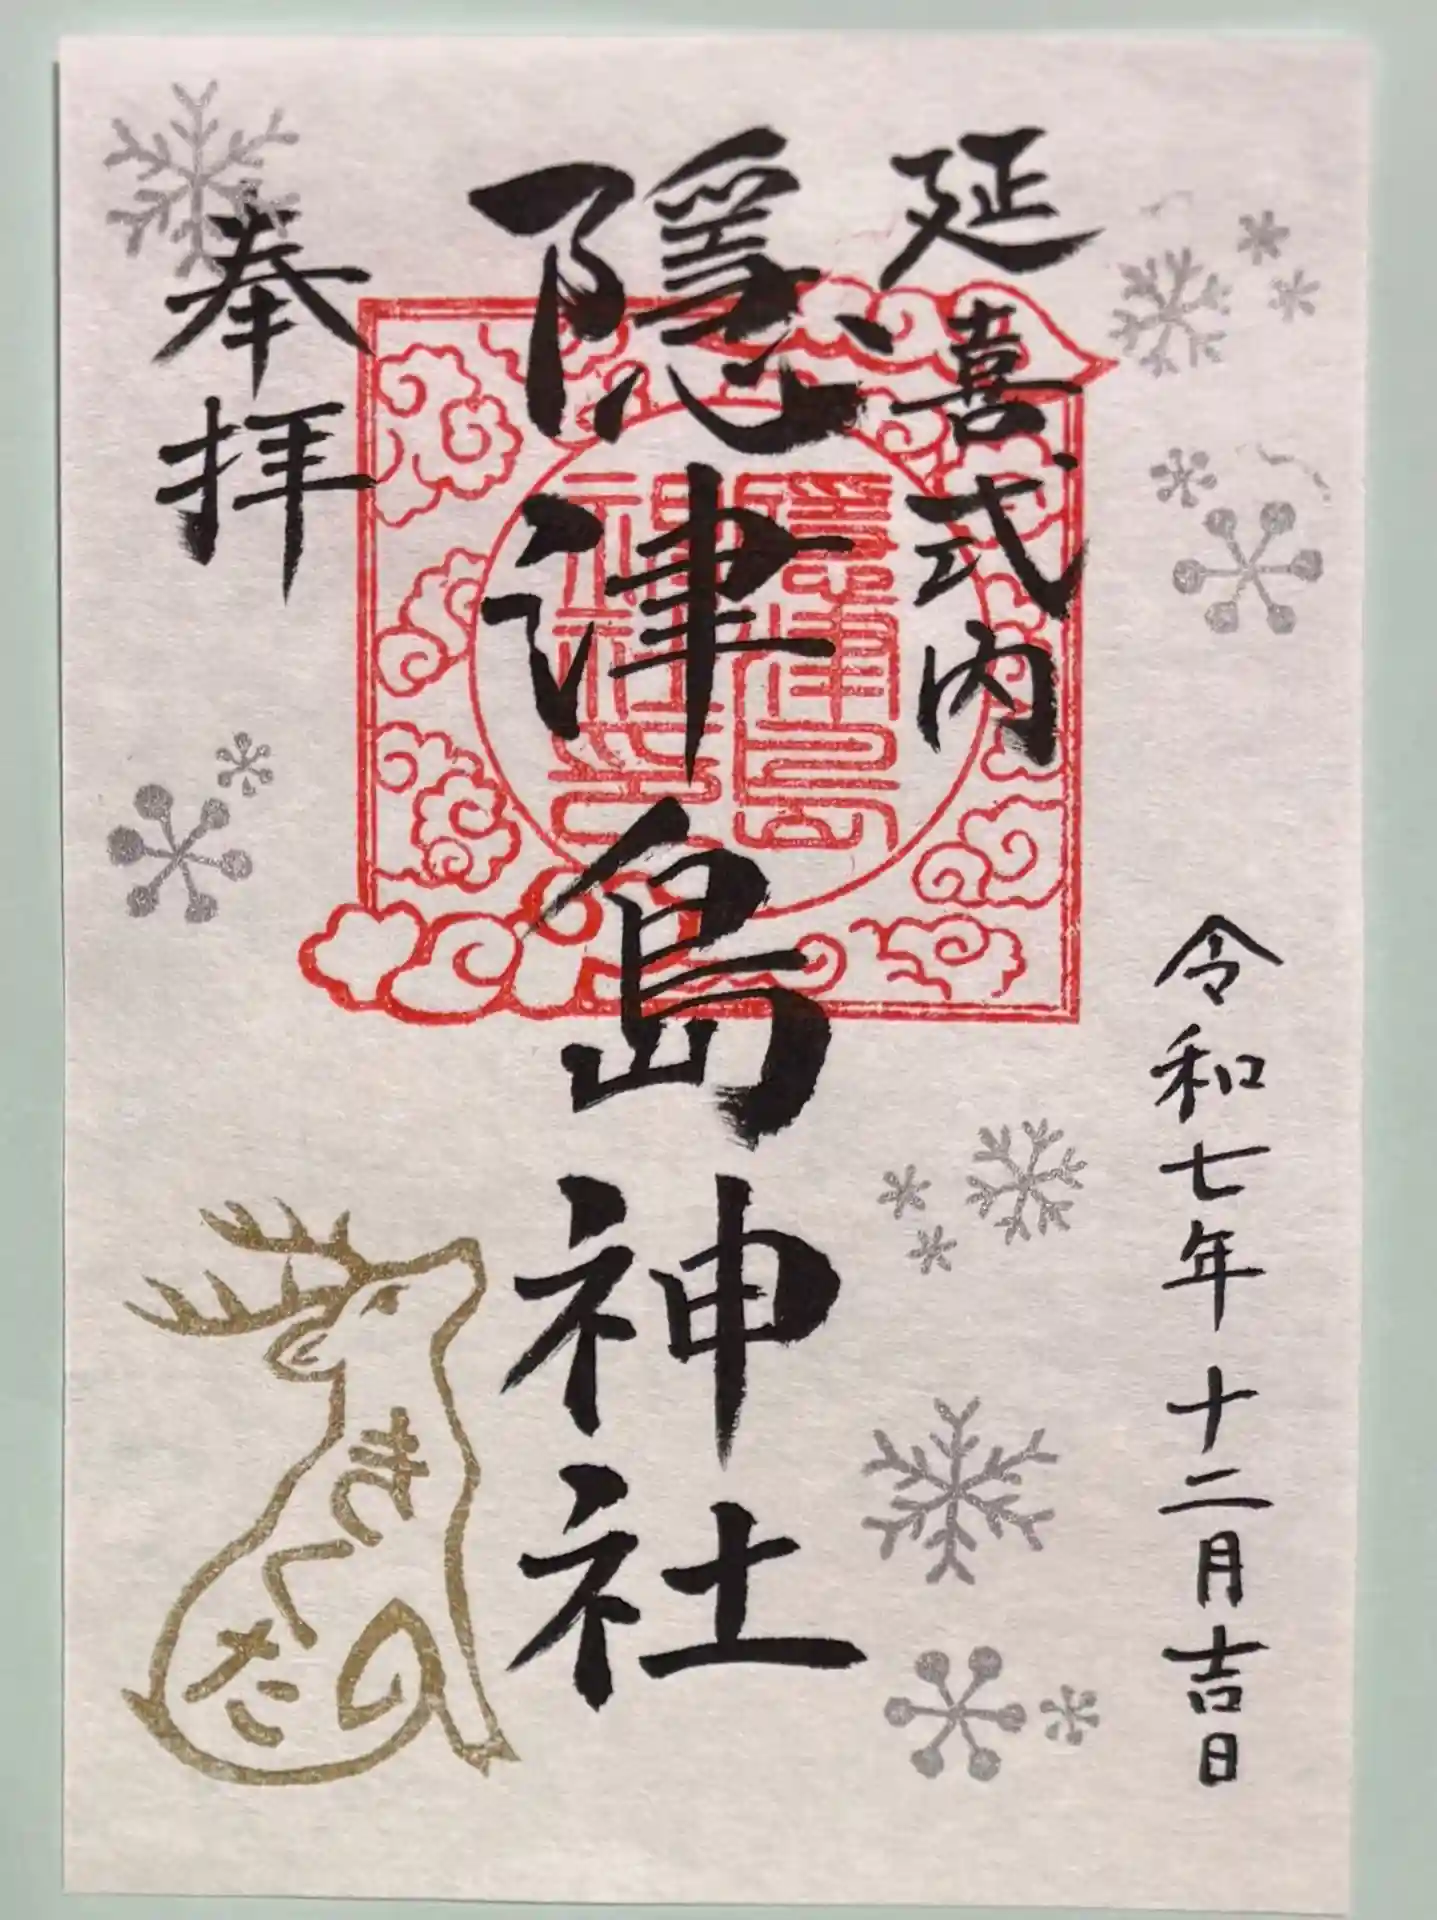 令和七年十二月吉日
延喜式内
隠津島神社
奉拝
隠津島
神社印
きくたの